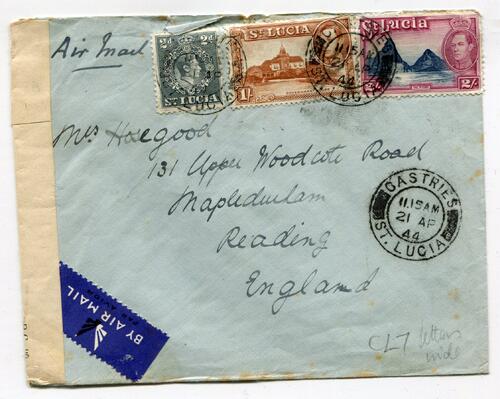 Air Mail
2d 2d
ST. LUCIA
ST LUCIA
1/-
ST LUCIA
2/-
11.15AM
21 AP
44
ST. LUCIA
Mrs Haegood
131 Upper Woodcote Road
Mapledurham
Reading
England
CASTRIES
11.15AM
21 AP
44
ST. LUCIA
BY AIR MAIL
PAR AVION
CL7 letters
inside